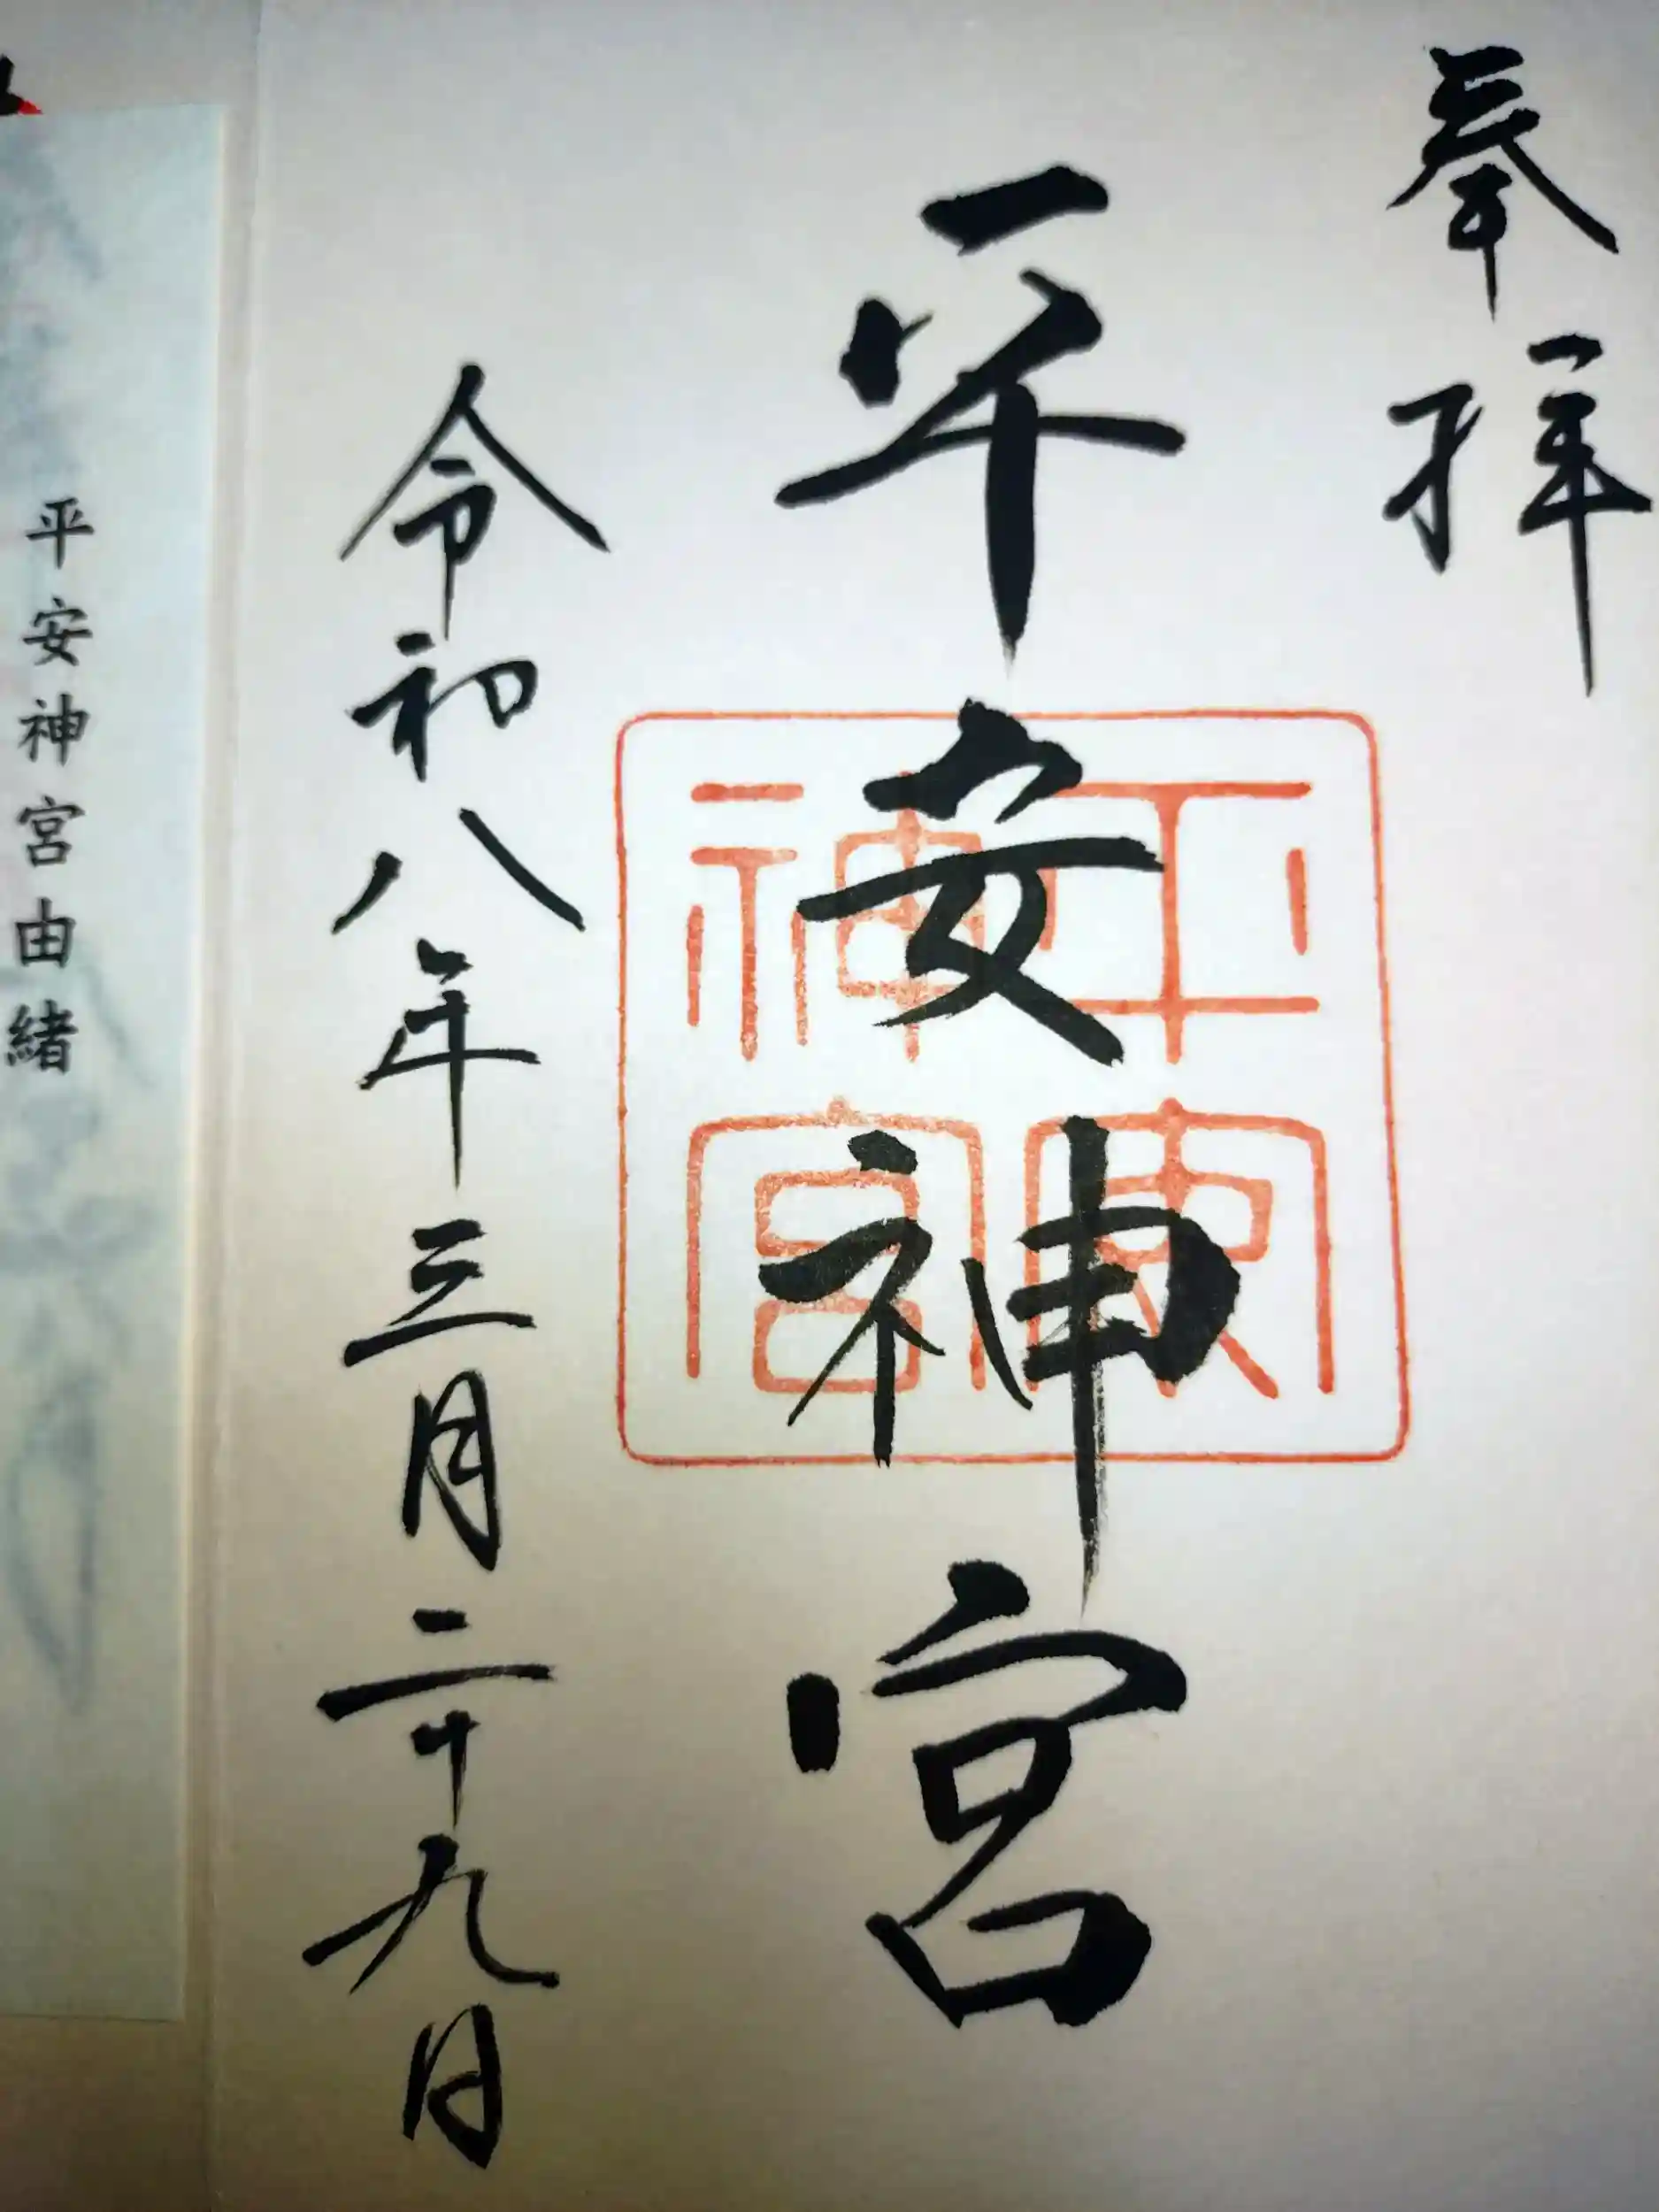 奉拝
平安神宮
平安
神宮
令和八年三月二十九日
平安神宮由緒